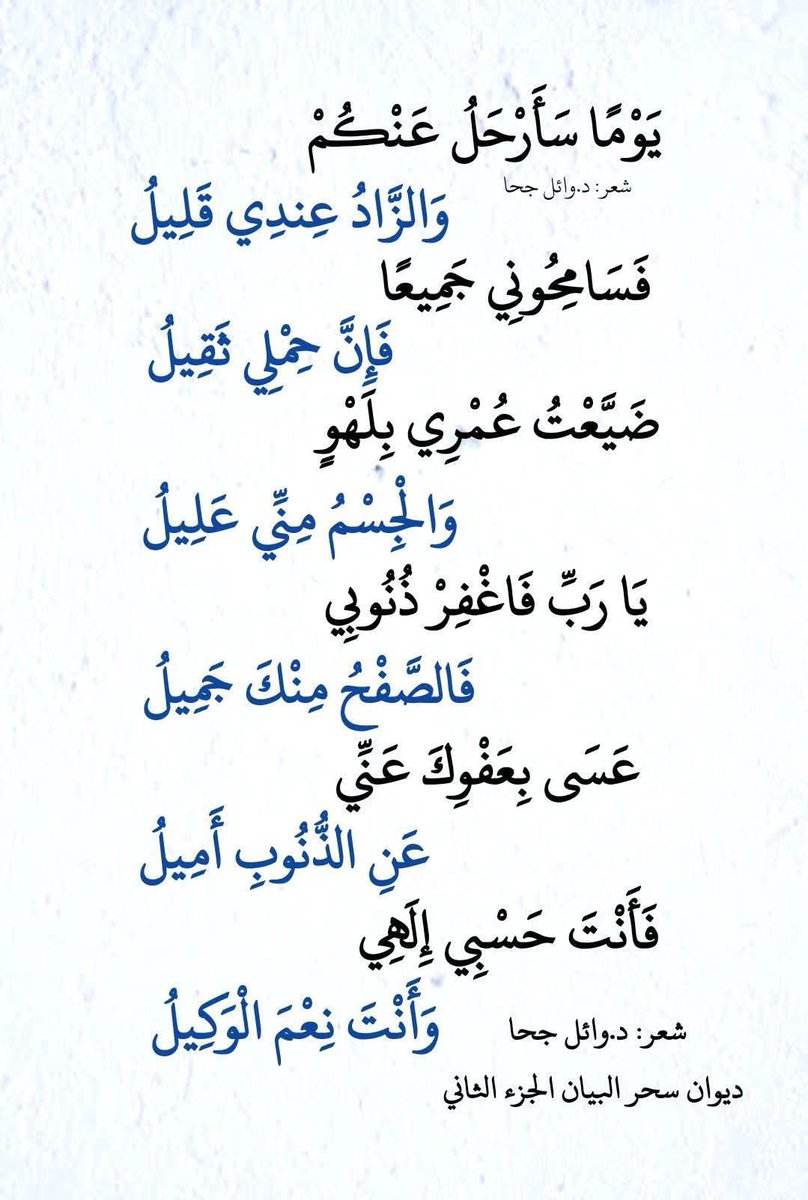 يَوْمًا سَأَرْحَلُ عَنْكُمْ
شعر: د.وائل جحا
وَالزَّادُ عِندِي قَلِيلُ
فَسَامِحُونِي جَمِيعًا
فَإِنَّ حِمْلِي ثَقِيلُ
ضَيَّعْتُ عُمْرِي بِلَهْوٍ
وَالْجِسْمُ مِنِّي عَلِيلُ
يَا رَبِّ فَاغْفِرْ ذُنُوبِي
فَالصَّفْحُ مِنْكَ جَمِيلُ
عَسَى بِعَفْوِكَ عَنِّي
عَنِ الذُّنُوبِ أَمِيلُ
فَأَنْتَ حَسْبِي إِلَهِي
وَأَنْتَ نِعْمَ الْوَكِيلُ
شعر: د.وائل جحا
ديوان سحر البيان الجزء الثاني